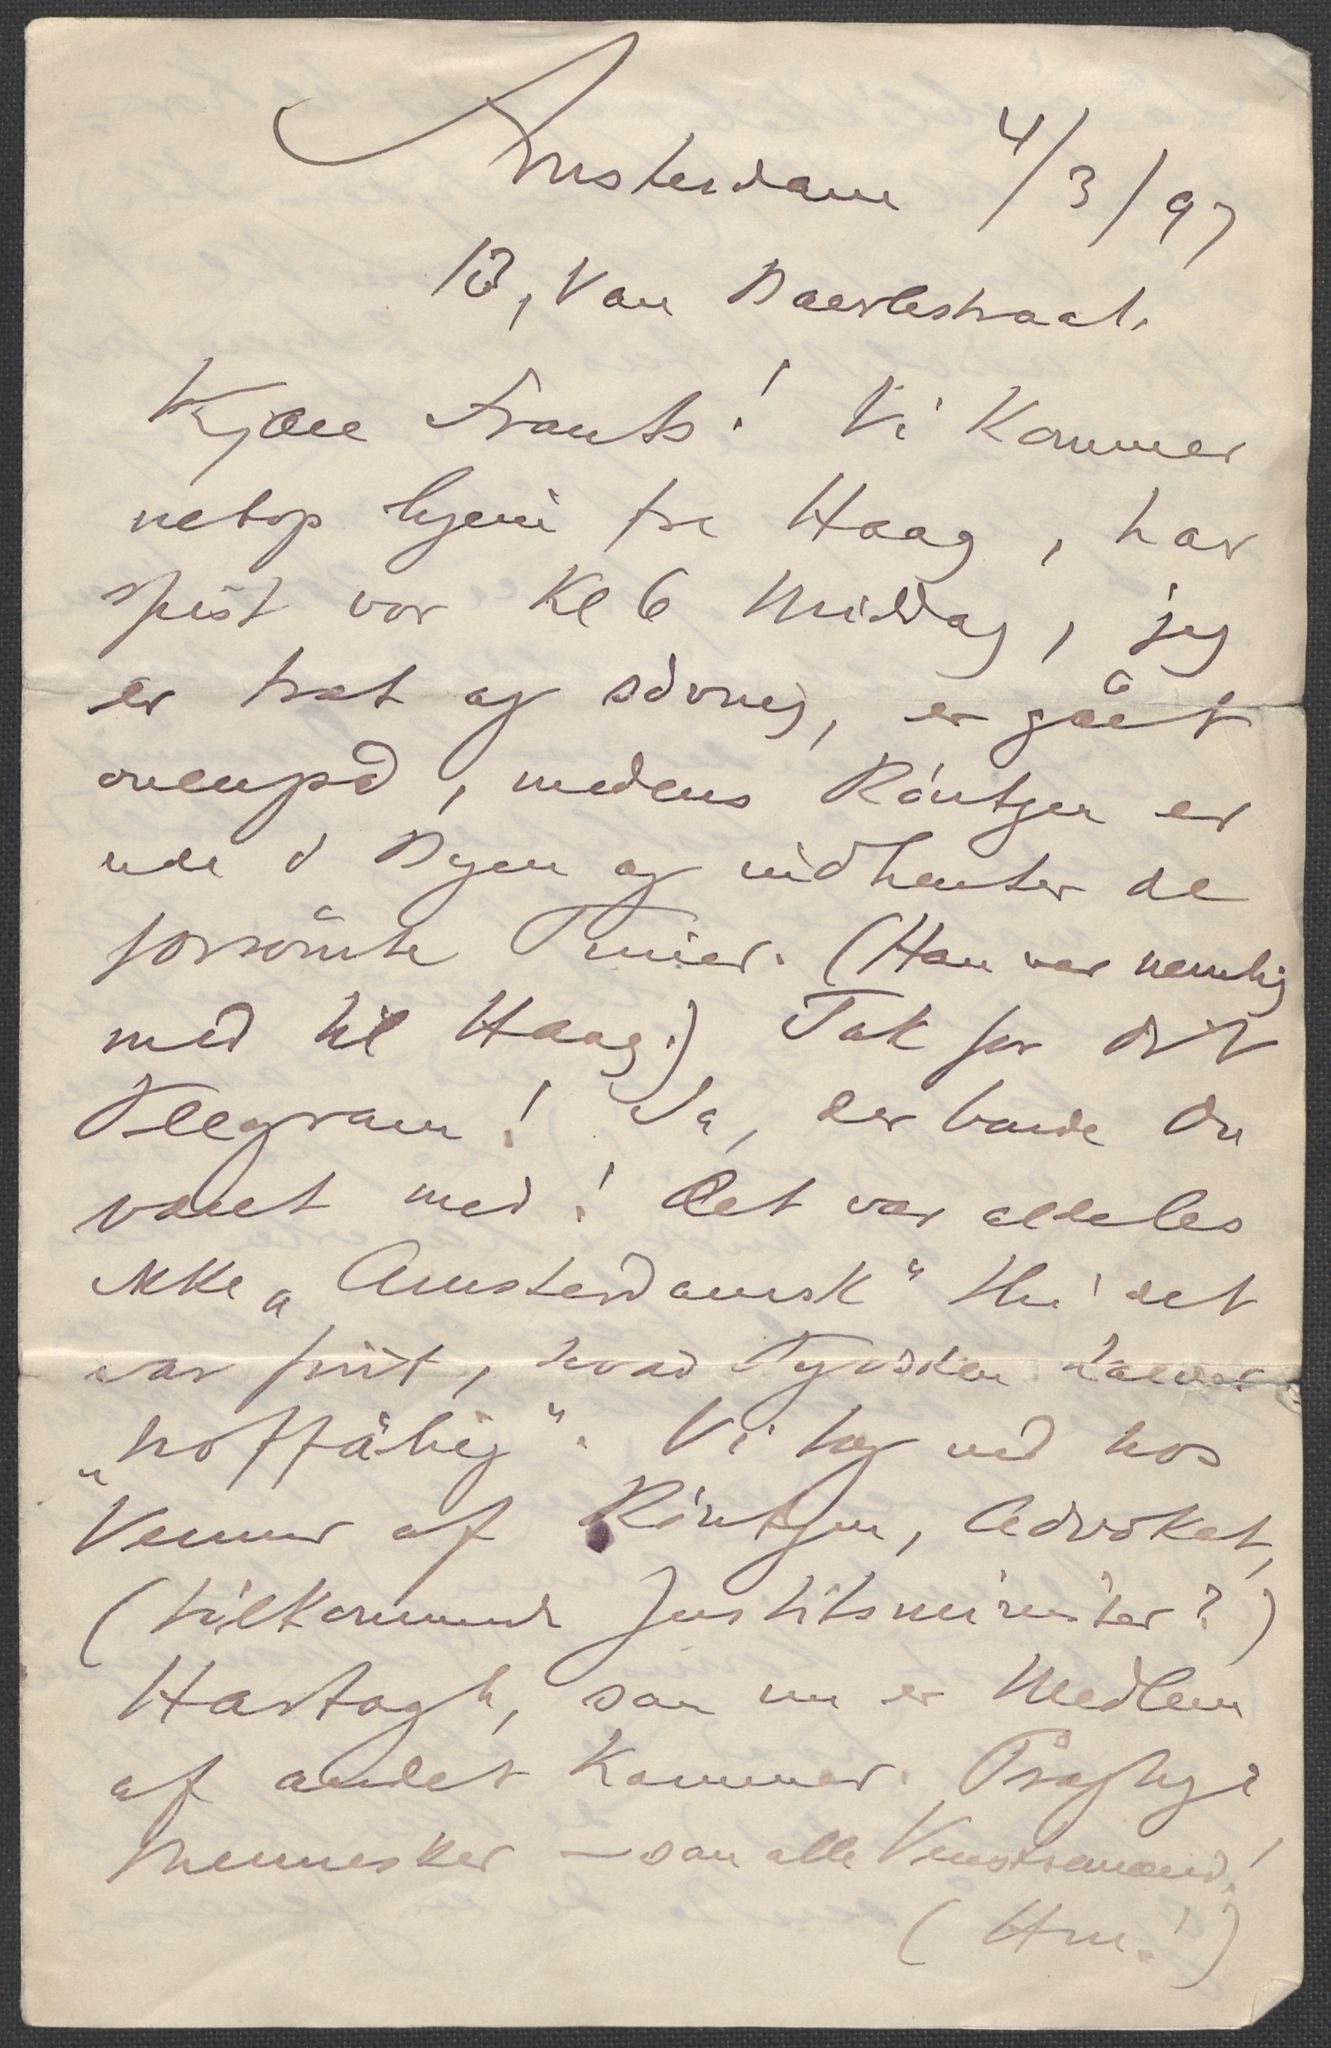 Amsterdam 4/3/97
13, Van Baerlestraat.
Kjære Frants! Vi kommer
netop hjem fra Haag, har
spist vor Kl 6 Middag, jeg
er træt og søvnig, er gået
ovenpå, medens Röntgen er
ude i Byen og indhenter de
forsömte Timer. (Han var nemlig
med til Haag.) Tak for Dit
Telegram! Ja, der burde Du
været med! Det var aldeles
ikke „Amsterdamsk" thi det
var fint, hvad Tyskken kalder
„hoffähig". Vi tog ind hos
Venner af Röntgen, Advokat,
(tilkommende Justitsminister?)
Hartogh, som nu er Medlem
af andet Kammer. Prægtige
Mennesker – som alle Venstremænd!
(Hm!)